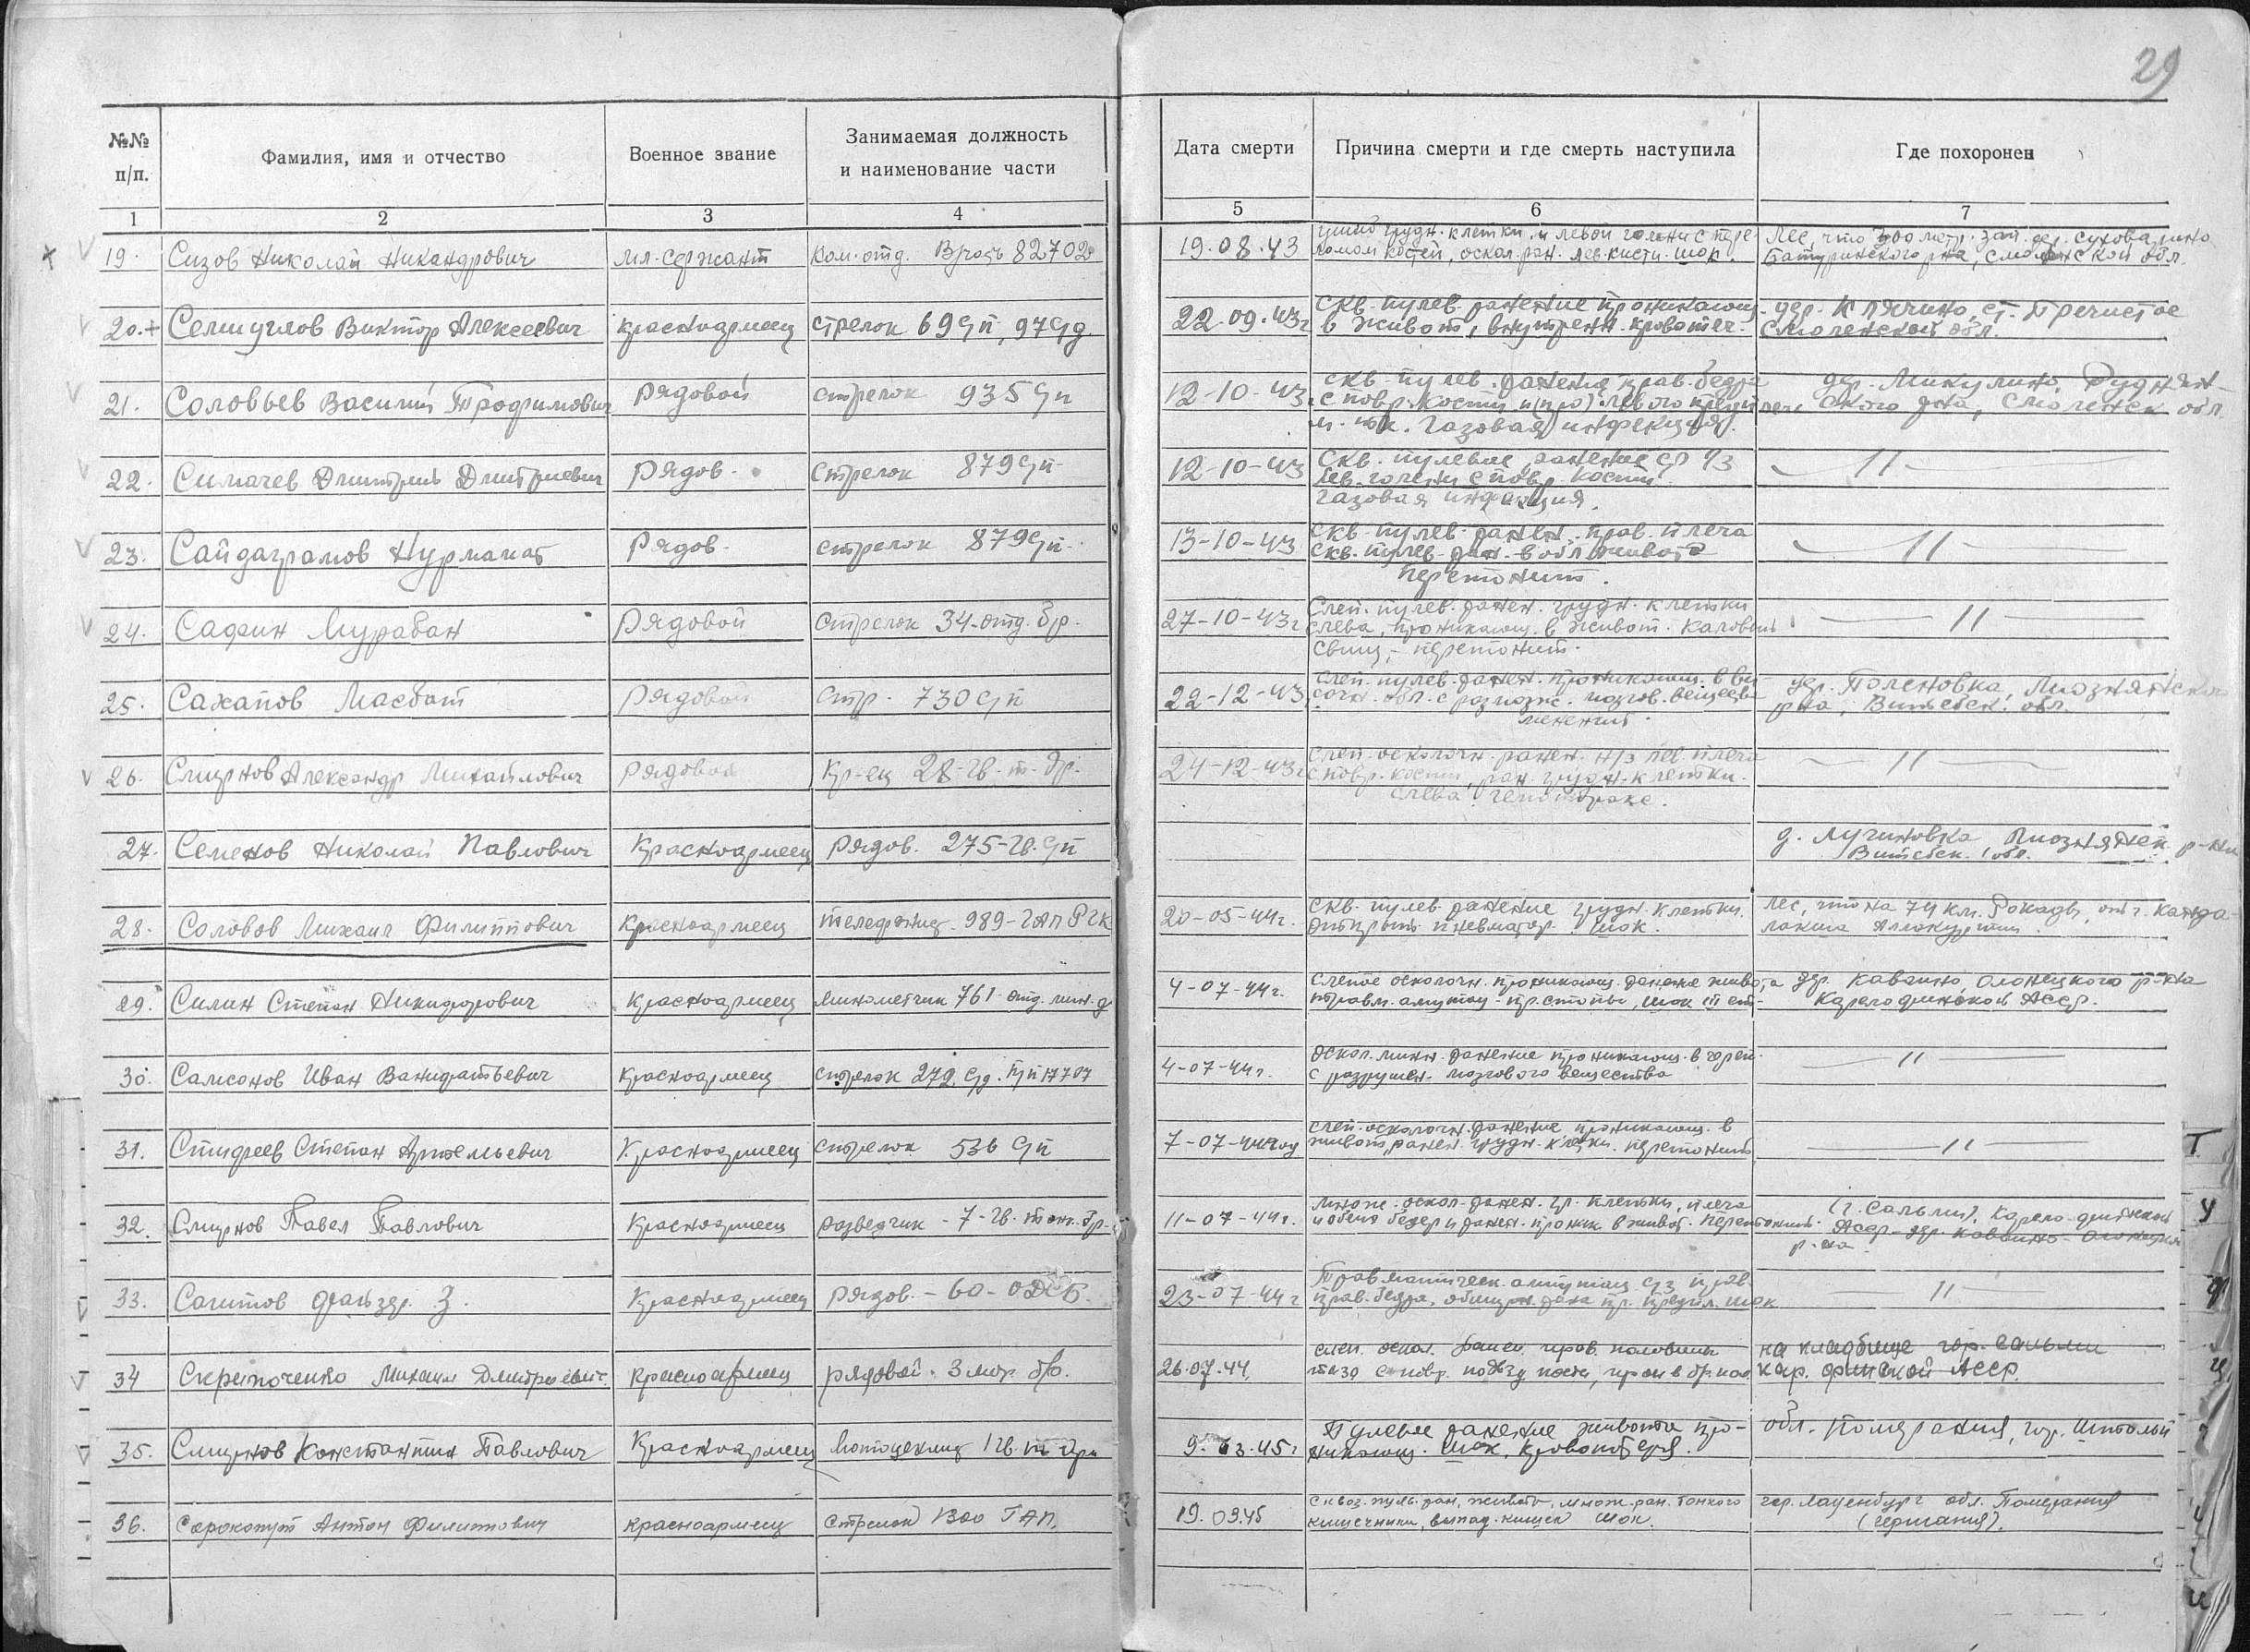 29
№№ п/п.
Фамилия, имя и отчество
Военное звание
Занимаемая должность
и наименование части
Дата смерти
Причина смерти и где смерть наступила
Где похоронен
1 2 3 4 5 6 7
19. Сизов Николай Никандрович мл. сержант Ком. отд. 82702 19.08.43
грудн. клетки и левой голени с пере-
ломом костей, оскол. ран. лев. кисти. шок.
Лес, что 300 метр. зап. дер.
Батуринского р-на, Смоленской обл.
20. + Семиуглов Виктор Алексеевич красноармеец стрелок 69 сп, 97 сд. 22.09.43г
Скв. пулев. ранение проникающ.
в живот, внутрен. кровотеч.
дер. Клячино, ст. Пречистое
Смоленской обл.
21. Соловьев Василий Трофимович Рядовой стрелок 935 сп 12-10-43
скв. пулев. ранение прав. бедра
с повр. кости и левого предплеч.
м. тк. Газовая инфекция.
дер. Микулино, Руднян-
ского р-на, Смоленск обл.
22. Симачев Дмитрий Дмитриевич Рядов. Стрелок 879 сп 12-10-43
Скв. пулевое ранение ср 1/3
лев. голени с повр. кости.
Газовая инфекция.
— 〃 —
23. Сайдаграмов Нурмамат Рядов. стрелок 879 сп. 13-10-43
Скв. пулев. ранен. прав. плеча
Скв. пулев. ран. в обл. живота
перетонит.
— 〃 —
24. Сафин Мурабан Рядовой Стрелок 34-отд. бр. 27-10-43г
Слеп. пулев. ранен. грудн. клетки
слева, проникающ. в живот. Каловый
свищ, - перетонит.
— 〃 —
25. Сахапов Масбат Рядовой Стр. 730 сп 22-12-43
Слеп. пулев. ранен. проникающ. в ви-
сочн. обл. с размозж. мозгов. вещества
менингит.
дер. Поленовка, Лиознянского
р-на, Витебск. обл.
26. Смирнов Александр Михайлович Рядовой Кр-ец 28-гв. т. бр. 24-12-43г
Слеп. осколочн. ранен. н/з лев. плеча
с повр. кости, ран. грудн. клетки.
слева гемоторакс.
— 〃 —
27. Семенов Николай Павлович Красноармеец Рядов. 275-гв. сп
д. Лучиновка Лиознянск. р-на
Витебск. обл.
28. Соловов Михаил Филиппович Красноармеец телефонист. 989-ГАП РГК 20-05-44г.
Скв. пулев. ранение грудн. клетки.
открыт. пневматор. шок.
Лес, что на 74 км. Рокады, от г. Канда-
лакша
29. Силин Степан Никифорович Красноармеец минометчик 761 отд. мин. д 4-07-44г.
Слепое осколочн. проникающ. ранение живота
травм. ампутац. пр. стопы, шок
дер. Каваино, Олонецкого р-на
Карелофинской АССР.
30. Самсонов Иван Ванифатьевич Красноармеец стрелок 272 сд. пп 17707 4-07-44г.
Оскол. минн. ранение проникающ. в череп.
с разрушен. мозгового вещества
— 〃 —
31. Спидреев Степан Артемьевич Красноармеец стрелок 536 сп 7-07-44 год
слеп. осколочн. ранение проникающ. в
живот, ранен. грудн. клетки. перетонит
— 〃 —
32. Смирнов Павел Павлович Красноармеец разведчик - 7-гв. танк. бр. 11-07-44г.
Множ. оскол. ранен. гр. клетки, плеча
и обеих бедер и ранен. проник. в живот. Перетонит.
(г. Сальми), Карело-финской
АССР - дер. Каваино Олонецкого
р-на
33. Сагитов Файздр. З. Красноармеец Рядов. - 60- 23-07-44г
Травматическ. ампутац ср 1/3 прав.
прав. бедра, обширн. рана пр. предпл. шок
〃 —
34 Скрипоченко Михаил Дмитриевич. Красноармеец рядовой. 3 мор. бр. 26.07.44.
слеп. оскол. ранен. прав. половины
таза с повр.
на кладбище гор. Сальми
Кар. финской АССР.
35. Смирнов Константин Павлович Красноармеец Мотоциклист 1 гв. т бр. 9.03.45г
Пулевое ранение живота про-
никающ. Шок, кровопотеря.
обл. Померания, гор. Штольп
36. Сорокопут Антон Филиппович красноармеец Стрелок 1300 ГАП. 19.03.45
сквоз. пуль. ран, живота, множ. ран. тонкого
кишечника, выпад. кишек шок.
гор. Лауенбург обл. Померания
(Германия).
Т
У
Ф